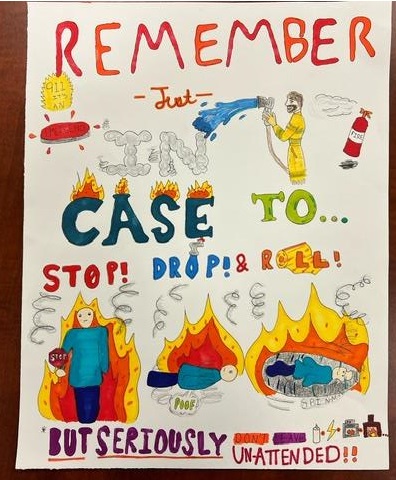 REMEMBER
911 IT'S AN
- Just -
IN
FIRE
CASE TO...
STOP! DROP! & ROLL!
STOP
POOF!
*BUT SERIOUSLY DON'T LEAVE
UN-ATTENDED!!